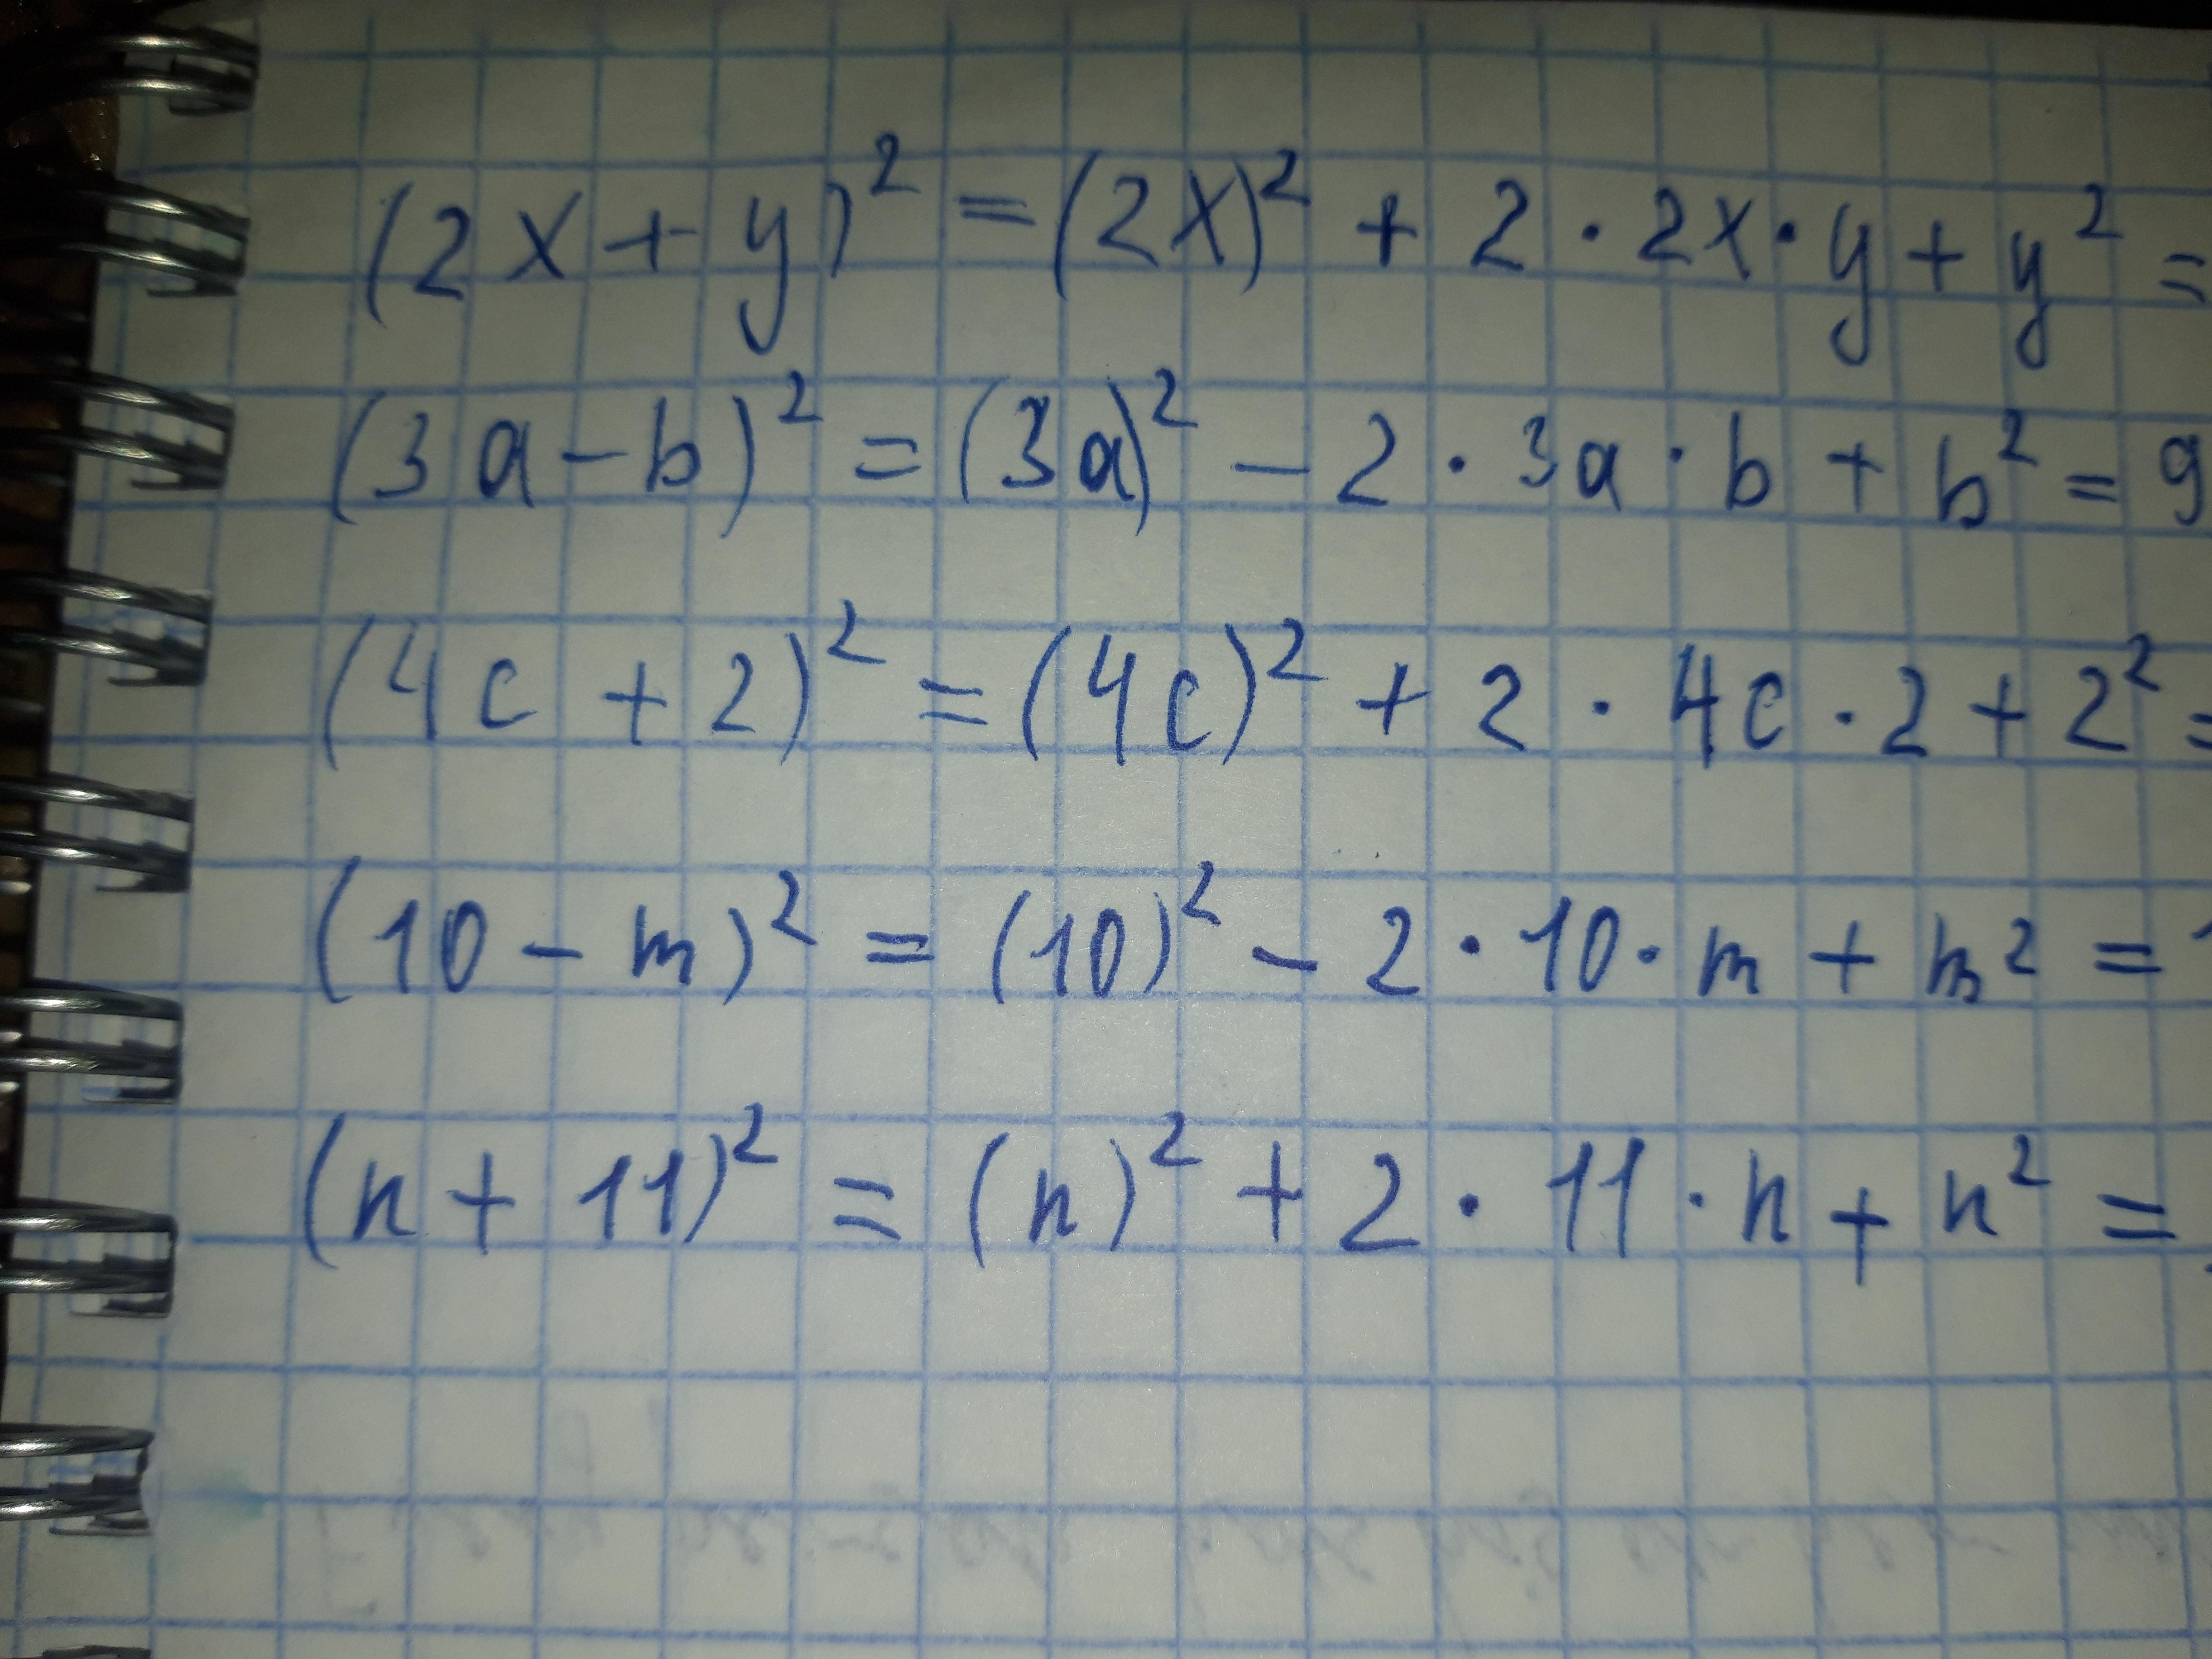 (2x+y)² = (2x)² + 2·2x·y + y² =
(3a-b)² = (3a)² - 2·3a·b + b² = 9
(4c+2)² = (4c)² + 2·4c·2 + 2² =
(10-m)² = (10)² - 2·10·m + m² =
(n+11)² = (n)² + 2·11·n + n² =